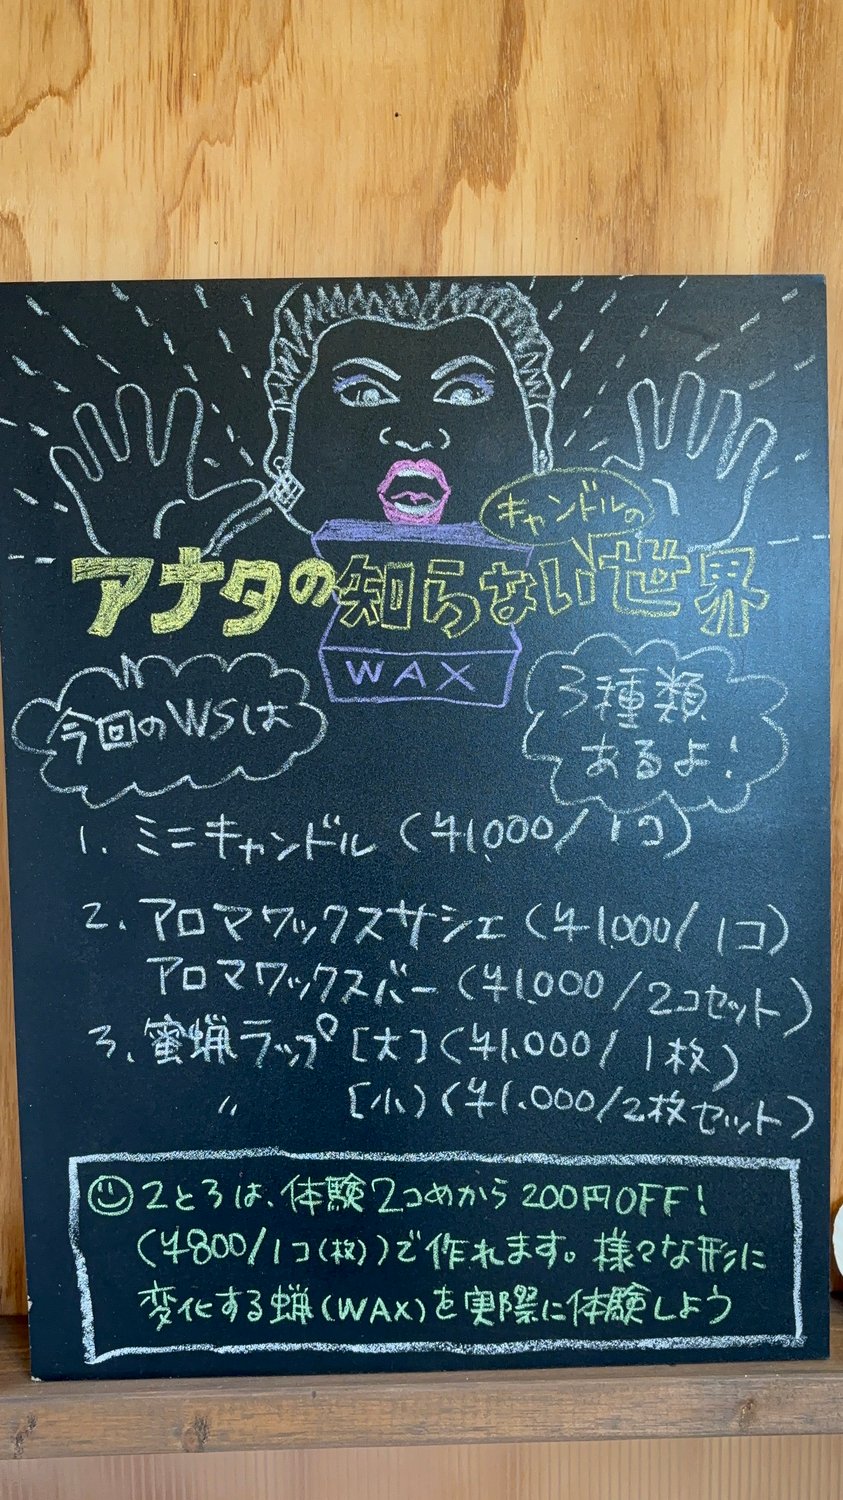 キャンドルの
アナタの知らない世界
WAX
今回のWSは
3種類
あるよ!
1. ミニキャンドル (¥1,000/1コ)
2. アロマワックスサシェ (¥1,000/1コ)
アロマワックスバー (¥1,000/2コセット)
3. 蜜蝋ラップ [大] (¥1,000/1枚)
〃 [小) (¥1,000/2枚セット)
2と3は、体験2コめから200円OFF!
(¥800/1コ(枚))で作れます。様々な形に
変化する蝋(WAX)を実際に体験しよう